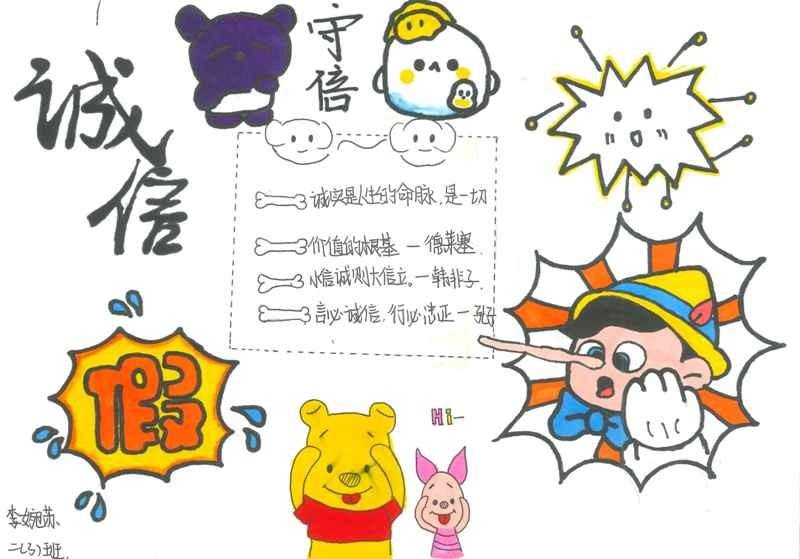 诚信
守倍
诚实是人生的命脉,是一切
价值的根基 —德莱塞.
小信诚则大信立。—韩非子.
言必诚信,行必 正 —孔子
假
Hi~
李婉苏
二(3)班.